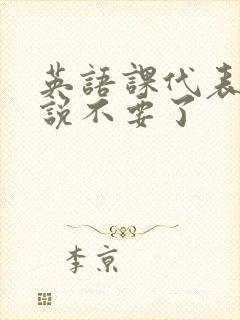 英語課代表
說不要了
李京